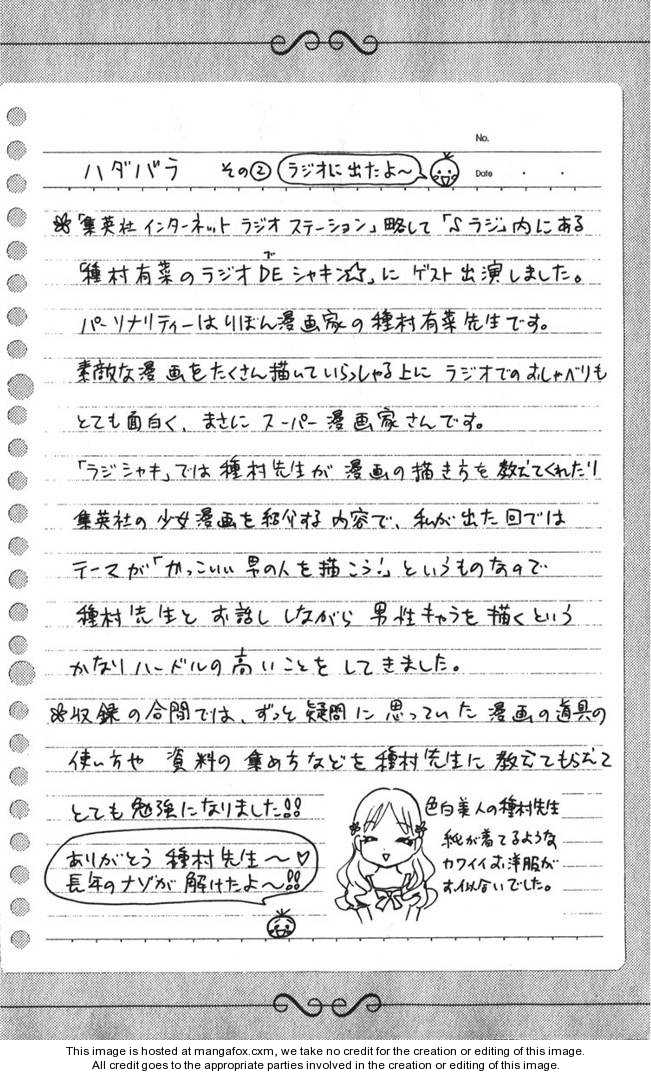 No.
ハダバラ その② ラジオに出たよ〜
Date ・ ・
「集英社インターネット ラジオ ステーション」略して「♪ラジ」内にある
「種村有菜のラジオDEシャキン☆」に ゲスト出演しました。
で
パーソナリティーはりぼん漫画家の種村有菜先生です。
素敵な漫画をたくさん描いていらっしゃる上に ラジオでのおしゃべりも
とても面白く、まさに スーパー漫画家さんです。
「ラジシャキ」では種村先生が 漫画の描き方を教えてくれたり
集英社の少女漫画を紹介する内容で、私が出た回では
テーマが「かっこいい男の人を描こう!」というものなので
種村先生とお話ししながら 男性キャラを描くという
かなりハードルの高いことをしてきました。
収録の合間では、ずっと疑問に思っていた漫画の道具の
使い方や 資料の集め方などを種村先生に教えてもらえて
とても勉強になりました!!
ありがとう 種村先生〜♡
長年のナゾが解けたよ〜!!
色白美人の種村先生
紀が着てるような
カワイイお洋服が
お似合いでした。
This image is hosted at mangafox.cxm, we take no credit for the creation or editing of this image.
All credit goes to the appropriate parties involved in the creation or editing of this image.